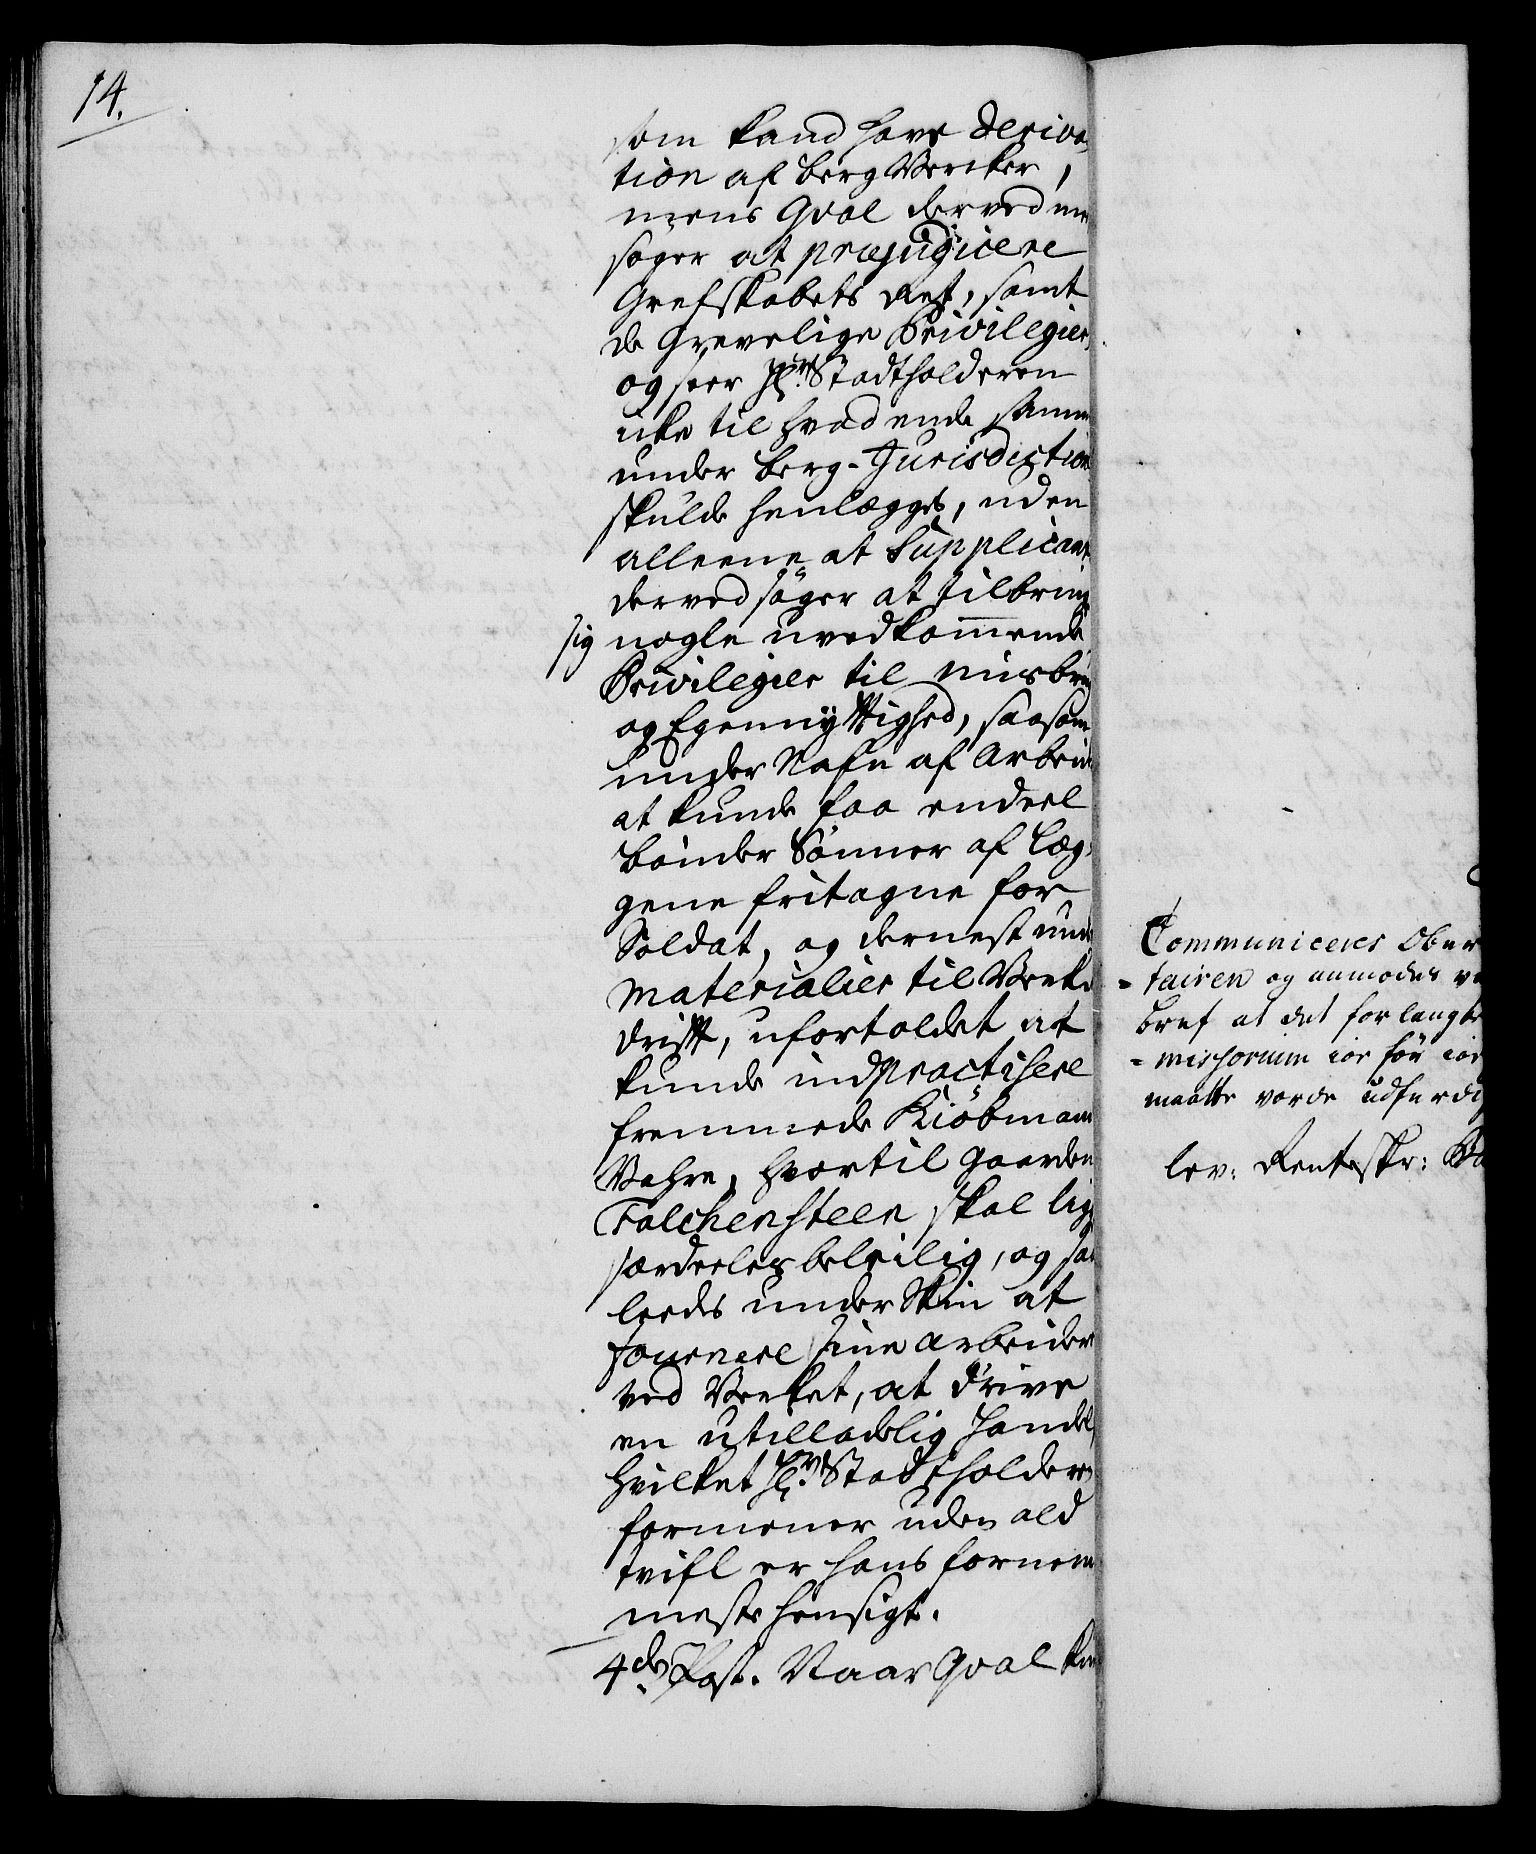 14.
som kand have Deriva-
tion af Berg Wercker,
mens Qvol derved me
søger at præjudicere
Grefskabets Ret, samt
de Grevelige Privilegier,
og seer Hr. Stadtholderen
icke til hvad ende samme
under Berg-Jurisdiction
skulde henlægges, uden
alleene at Supplicant
derved søger at tilbringe
sig nogle uvedkommende
Privilegier til misbrug
og Egennyttighed, saasom
under Nafn af Arbeid
at kunde faa endeel
bønder Sønner af Læg-
gene fritagne for
Soldat, og dernest under
Materialier til Verkets
drift, ufortoldet at
kunde indpractisere
fremmede Kiøbmans
Vahre, hvortil gaarden
Falchensteen skal ligge
særdeeles beleilig, og saa
leedes under Skin at
fournere sine arbeidere
ved Verket, at drive
en utilladelig handel,
hvilket Hr. Stadtholderen
formener uden ald
tvifl er hans fornem
meste hensigt.
4de Post. Naar Qvol
Communiceres Ober
-tairen og anmodes ve
bref at det forlangte
-missorium ior før ior
maatte vorde udferdig
lev: Rentesskr: